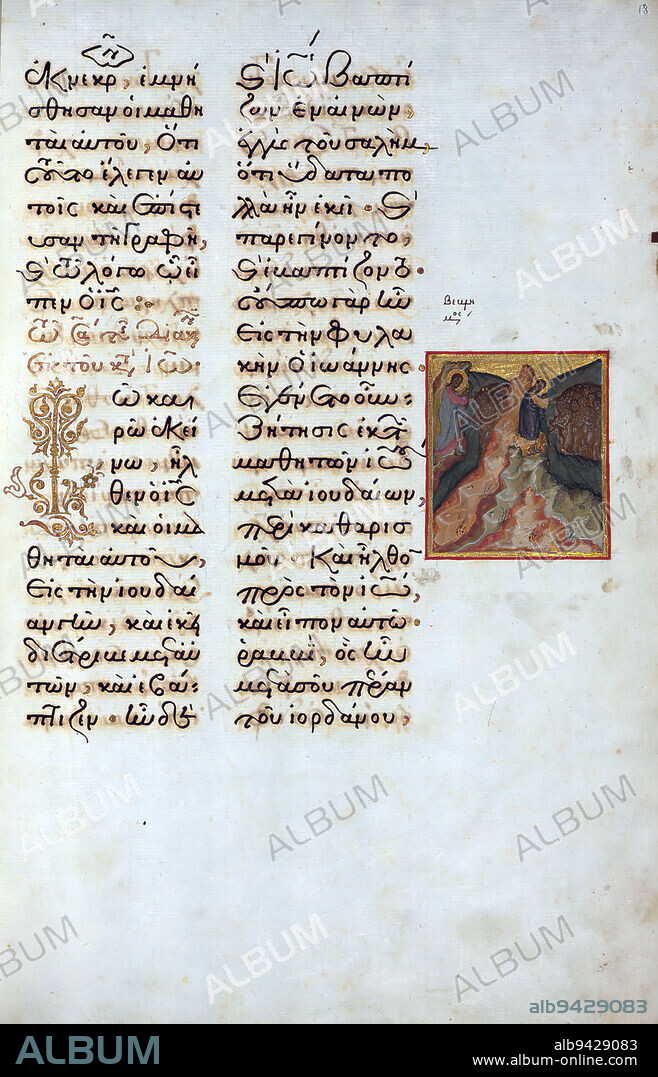 18
ἐκ νεκρ, ἐμνή
σθησαν οἱ μαθη
ταὶ αὐτοῦ, ὅτι
τοῦτο ἔλεγεν αὐ
τοῖς καὶ ἐπίστε
υσαν τῇ γραφῇ,
ϗ τῷ λόγῳ ᾧ εἶ
πεν ὁ ἰς :
ἐκ τοῦ κτ ἰω
Τῷ και
ρῷ ἐκεί
νῳ, ἦλ
θεν ὁ ἰς
καὶ οἱ μα
θηταὶ αὐτοῦ,
εἰς τὴν ἰουδαί
αν γῆν, καὶ ἐκεῖ
διέτριβε μετ αὐ
τῶν, καὶ ἐβά
πτιζεν · ἦν δὲ
ϗ ἰω βαπτί
ζων ἐν αἰνὼν,
ἐγγὺς τοῦ σαλὴμ,
ὅτι ὕδατα πο
λλὰ ἦν ἐκεῖ · ϗ
παρεγίνοντο,
ϗ ἐβαπτίζοντο ·
οὔπω γὰρ ἦν
εἰς τὴν φυλα
κὴν ὁ ἰωάννης ·
ἐγένετο οὖν
ζήτησις ἐκ τῶν
μαθητῶν ἰω
μετὰ ἰουδαίων,
περὶ καθαρισ
μοῦ · καὶ ἦλθον
πρὸς τὸν ἰω,
καὶ εἶπον αὐτῷ ·
ῥαββὶ, ὃς ἦν
μετὰ σοῦ πέραν
τοῦ ἰορδάνου,
ALBUM
alb9429083
ALBUM
alb9429083
www.album-online.com